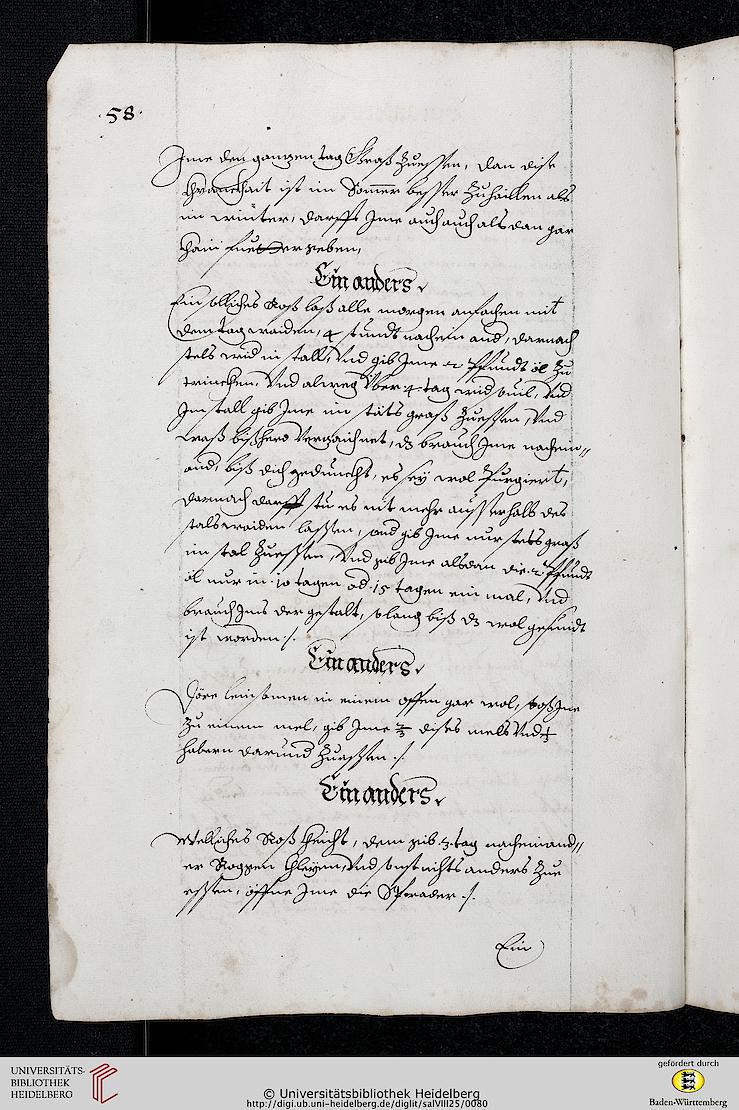 58.
Ime den ganzen tag Graß Zuessen, dan dise
Kranckhait ist im Sommer besser Zuhaillen als
im winter, darffst Ime auch auch als dan gar
Kain fuetter geben,
Ein anders.
Ein solliches Roß laß alle morgen anfachen mit
dem tag waiden, 4 stundt nachein and, darnach
stels wid in stall, Vnd gib Ime 2 Pfundt öl Zu
trinckhen, Vnd alweg Vber 4 tag wid souil, Vnd
Im stall gib Ime im stäts graß Zuessen, Vnd
waß bißhero Verzaichnet, ds brauch Ime nachein,,
and, biß dich gedunckht, es sey wol Purgiert,
darnach darffstu es nit mehr ausserhalb des
stals waiden lassen, sond gib Ime nur stets graß
im stal Zuessen, Vnd gib Ime alsdan die 2 Pfundt
öl nur in 10 tagen od 15 tagen ein mal, Vnd
brauch Ims der gestalt, solang biß ds wol gesundt
ist worden ./.
Ein anders.
Döre leinsamen in einem offen gar wol, stoß Ine
Zu einem mel, gib Ime dises mels Vnd
habern darund Zuessen ./.
Ein anders.
Welliches Roß Keicht, dem gib 3 tag nacheinand,,
er Roggen Kleyen, Vnd sonst nichts anders Zue
essen, öffne Ime die Sporader ./.
Ein
UNIVERSITÄTS-
BIBLIOTHEK
HEIDELBERG
© Universitätsbibliothek Heidelberg
http://digi.ub.uni-heidelberg.de/diglit/salVIII25/0080
gefördert durch
Baden-Württemberg